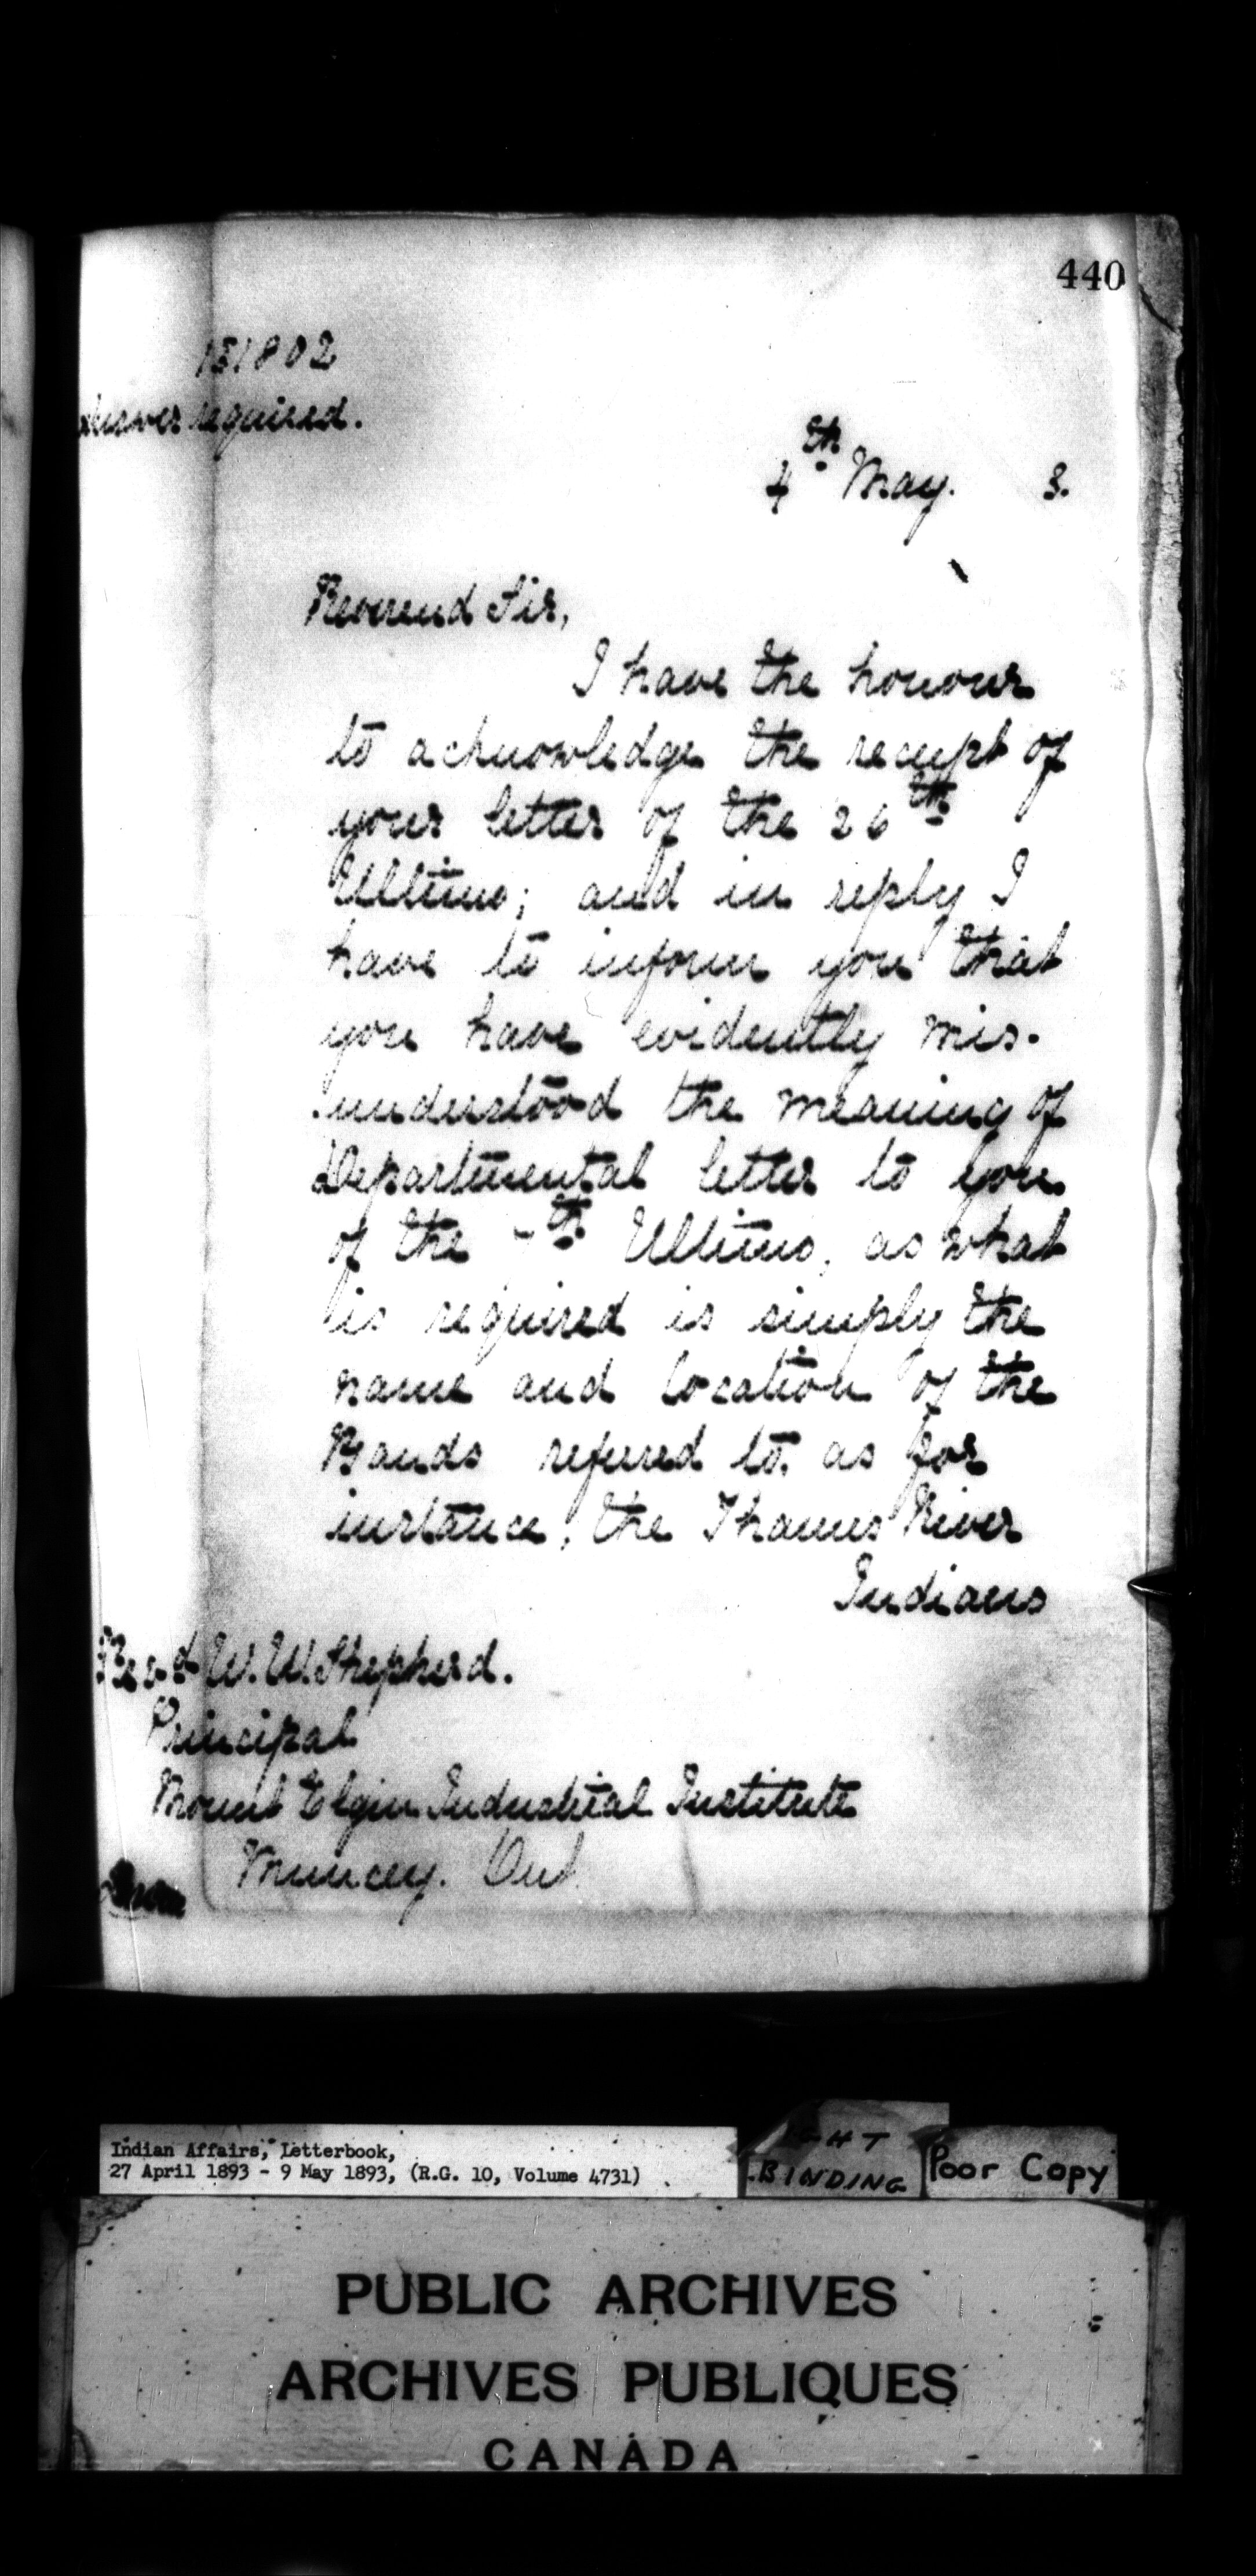 440
131802
Answer required.
4th May. 3.
Reverend Sir,
I have the honour
to acknowledge the receipt of
your letter of the 26th
Ultimo; and in reply I
have to inform you that
you have evidently mis-
understood the meaning of
Departmental letter to you
of the th Ultimo, as what
is required is simply the
name and location of the
Bands referred to, as for
instance, the Thames River
Indians
Revd W. W. Shepherd.
Principal
Mount Elgin Industrial Institute
Muncey. Ont
Indian Affairs, Letterbook,
27 April 1893 - 9 May 1893, (R.G. 10, Volume 4731)
BINDING
Poor Copy
PUBLIC ARCHIVES
ARCHIVES PUBLIQUES
CANADA